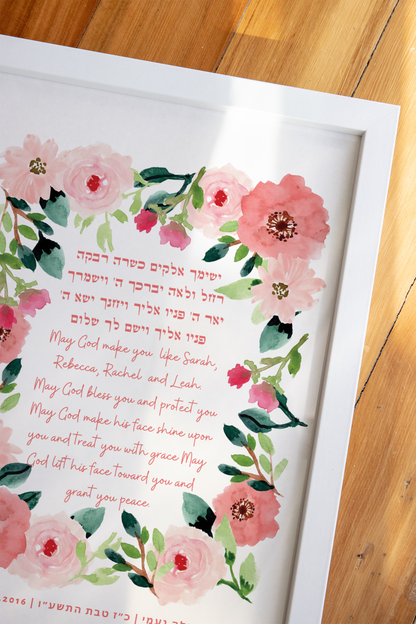 ישימך אלקים כשרה רבקה
רחל ולאה יברכך ה' וישמרך
יאר ה' פניו אליך ויחנך ישא ה'
פניו אליך וישם לך שלום
May God make you like Sarah,
Rebecca, Rachel and Leah.
May God bless you and protect you
May God make his face shine upon
you and treat you with grace May
God lift his face toward you and
grant you peace.
נעמי | כ״ז טבת התשע״ו | 2016